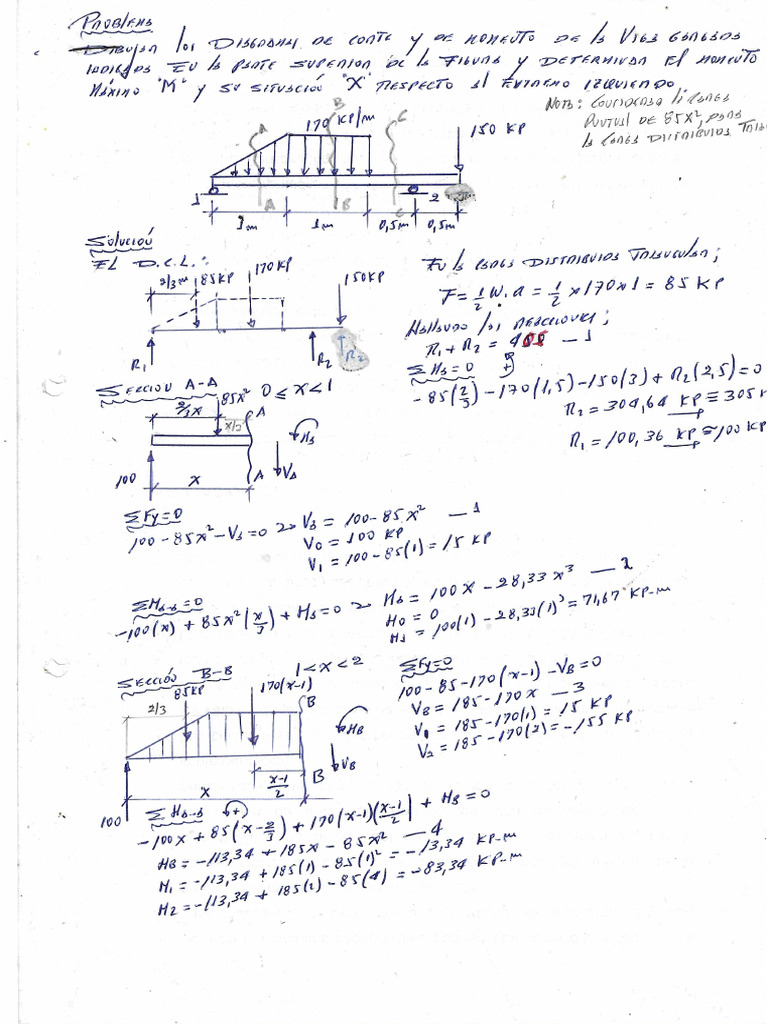 Problema
Dibujar los Diagramas de corte y de momento de la Viga cargada
indicada En la parte superior de la Figura y Determinar El momento
Máximo "M" y su situación "X" respecto al extremo izquierdo.
Nota: Considerar la carga
puntual de 85x², para
la carga distribuida
170 KP/m
150 KP
A
B
C
A
B
C
1
2
1m
1m
0,5m
0,5m
Solución
El D.C.L.:
2/3m
85KP
170KP
150KP
R1
R2
R2
En la carga distribuida triangular;
F = 1/2 W.a = 1/2 x170x1 = 85 KP
Hallando las reacciones;
R1 + R2 = 405 — 1
ΣM1=0 (+)
-85(2/3) - 170(1,5) - 150(3) + R2(2,5) = 0
R2 = 304,64 KP ≅ 305 K
R1 = 100,36 KP ≅ 100 KP
Sección A-A 0 ≤ x < 1
2/3x
85x²
x/3
A
M3
100
x
A
VA
ΣFy=0
100 - 85x² - V3 = 0 → V3 = 100 - 85x² — 1
V0 = 100 KP
V1 = 100 - 85(1) = 15 KP
ΣMB-B=0
-100(x) + 85x²(x/3) + M3 = 0 → MB = 100x - 28,33x³ — 2
M0 = 0
M1 = 100(1) - 28,33(1)³ = 71,67 KP-m
Sección B-B 1 < x < 2
85KP
170(x-1)
2/3
B
MB
VB
x-1/2
B
x
100
ΣFy=0
100 - 85 - 170(x-1) - VB = 0
VB = 185 - 170x — 3
V1 = 185 - 170(1) = 15 KP
V2 = 185 - 170(2) = -155 KP
ΣMB-B (+)
-100x + 85(x - 2/3) + 170(x-1)(x-1/2) + MB = 0
MB = -113,34 + 185x - 85x² — 4
M1 = -113,34 + 185(1) - 85(1)² = -13,34 KP-m
M2 = -113,34 + 185(2) - 85(4) = -83,34 KP-m